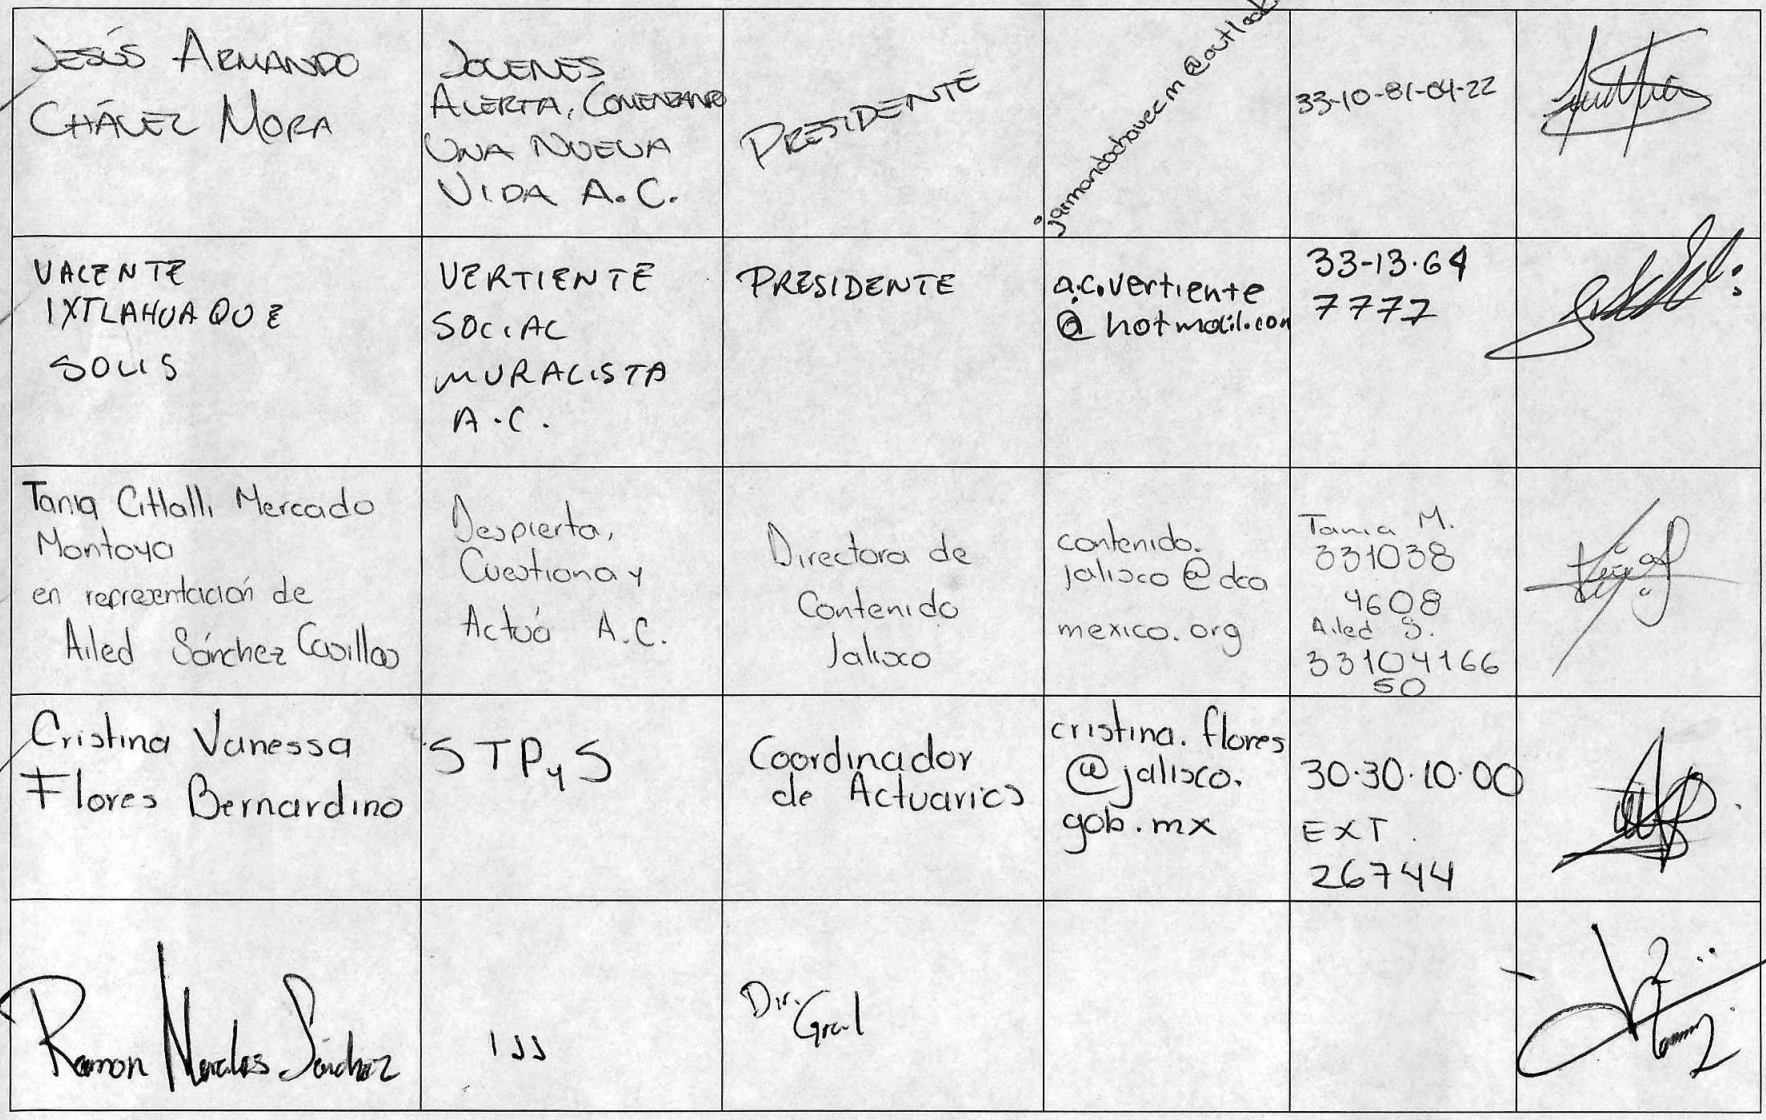 JESÚS ARMANDO
CHÁVEZ MORA
JOVENES
ALERTA, COMENZANDO
UNA NUEVA
VIDA A.C.
PRESIDENTE
jarmandochavezm@outlook
33-10-81-04-22
VALENTE
IXTLAHUAQUE
SOLIS
VERTIENTE
SOCIAL
MURALISTA
A.C.
PRESIDENTE
a.c.vertiente
@hotmail.com
33-13-64
7777
Tania Citlalli Mercado
Montoya
en representación de
Ailed Sánchez Casillas
Despierta,
Cuestiona y
Actúa A.C.
Directora de
Contenido
Jalisco
contenido.
jalisco@dca
mexico.org
Tania M.
331038
4608
Ailed S.
33104166
50
Cristina Vanessa
Flores Bernardino
STPyS
Coordinador
de Actuarios
cristina.flores
@jalisco.
gob.mx
30.30.10.00
EXT.
26744
Ramon Morales Sánchez
IJJ
Dir.
Gral